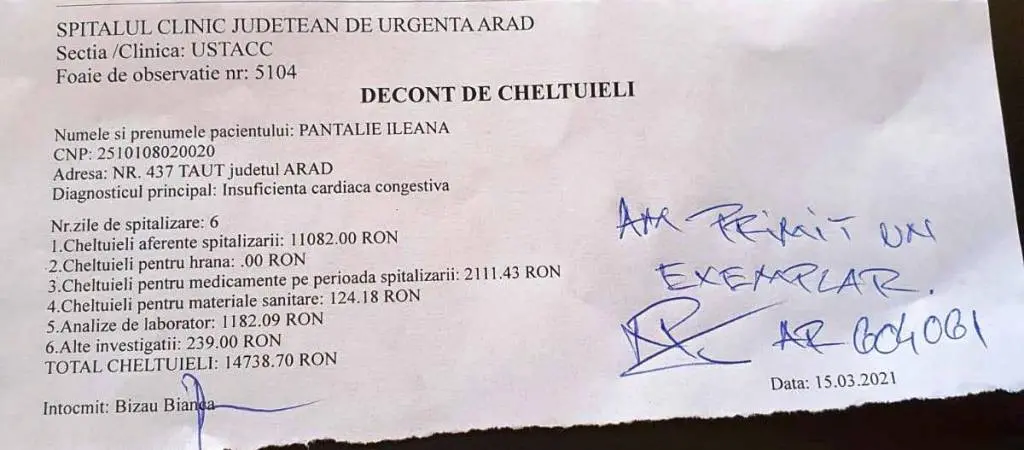 SPITALUL CLINIC JUDETEAN DE URGENTA ARAD
Sectia /Clinica: USTACC
Foaie de observatie nr: 5104
DECONT DE CHELTUIELI
Numele si prenumele pacientului: PANTALIE ILEANA
CNP: 2510108020020
Adresa: NR. 437 TAUT judetul ARAD
Diagnosticul principal: Insuficienta cardiaca congestiva
Nr.zile de spitalizare: 6
1.Cheltuieli aferente spitalizarii: 11082.00 RON
2.Cheltuieli pentru hrana: .00 RON
3.Cheltuieli pentru medicamente pe perioada spitalizarii: 2111.43 RON
4.Cheltuieli pentru materiale sanitare: 124.18 RON
5.Analize de laborator: 1182.09 RON
6.Alte investigatii: 239.00 RON
TOTAL CHELTUIELI: 14738.70 RON
Intocmit: Bizau Bianca
AM PRIMIT UN
EXEMPLAR.
AR 604061
Data: 15.03.2021